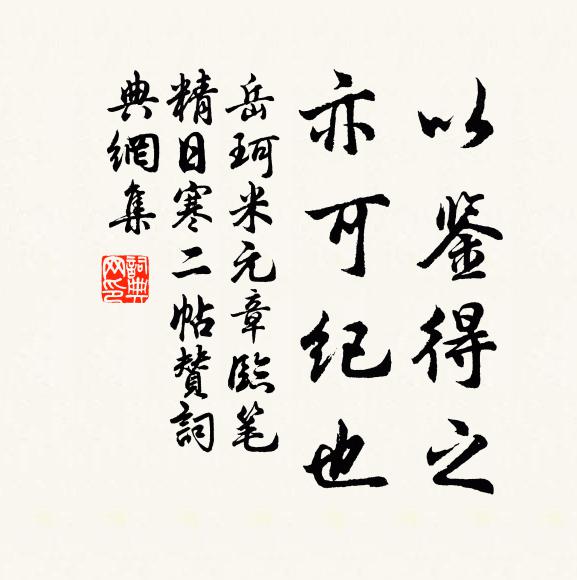 以鉴得之
亦可纪也
岳珂米元章臨笔
精日寒二帖赞詞
典網集
詞典網印